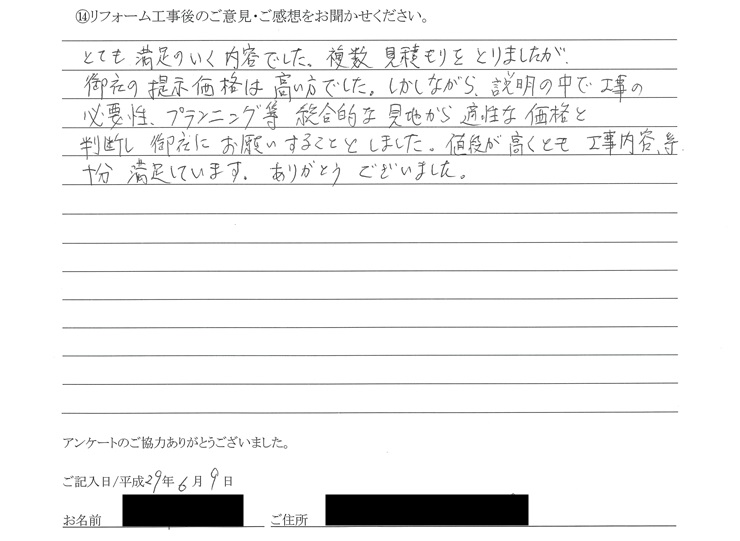 ⑭リフォーム工事後のご意見・ご感想をお聞かせください。
とても 満足のいく内容でした。複数 見積もりを とりましたが、
御社の 提示価格は 高い方でした。しかしながら、説明の中で 工事の
必要性、プランニング等 総合的な 見地から 適性な 価格と
判断し 御社に お願いすることと しました。値段が 高くとも 工事内容、等
十分 満足しています。ありがとう ございました。
アンケートのご協力ありがとうございました。
ご記入日/平成29年6月9日
お名前 ご住所